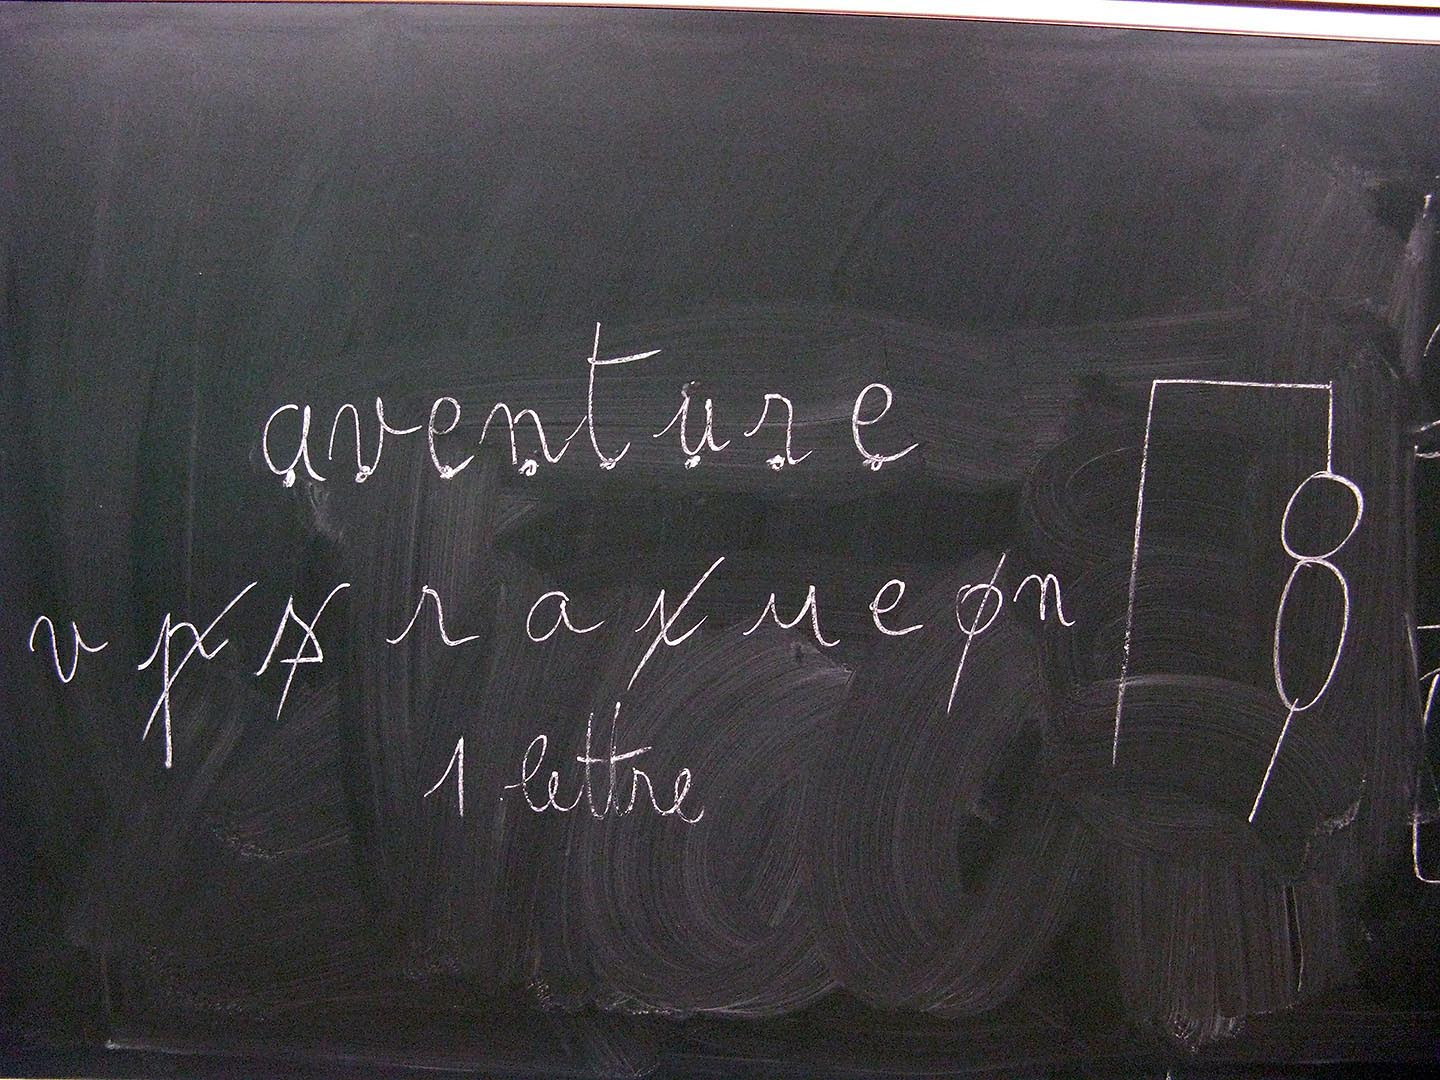 aventure
v p s r a i u e o n
1 lettre